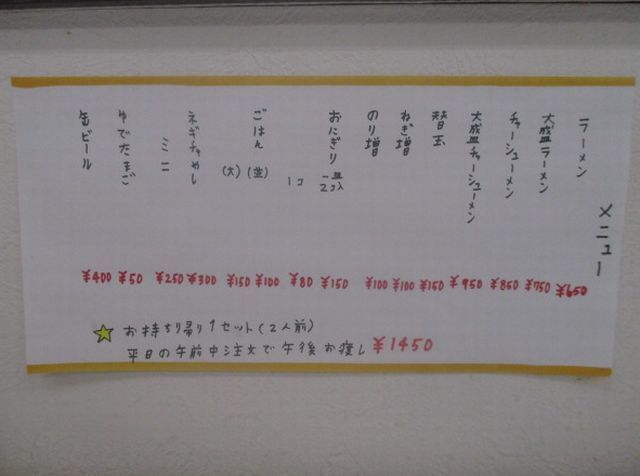 メニュー
ラーメン ¥650
大盛ラーメン ¥750
チャーシューメン ¥850
大盛チャーシューメン ¥950
替玉 ¥150
ねぎ増 ¥100
のり増 ¥100
おにぎり 一皿2コ入 ¥150
1コ ¥80
ごはん (並) ¥100
(大) ¥150
ネギチャめし ¥300
ミニ ¥250
ゆでたまご ¥50
缶ビール ¥400
お持ち帰り1セット(2人前)
平日の午前中注文で午後お渡し ¥1450